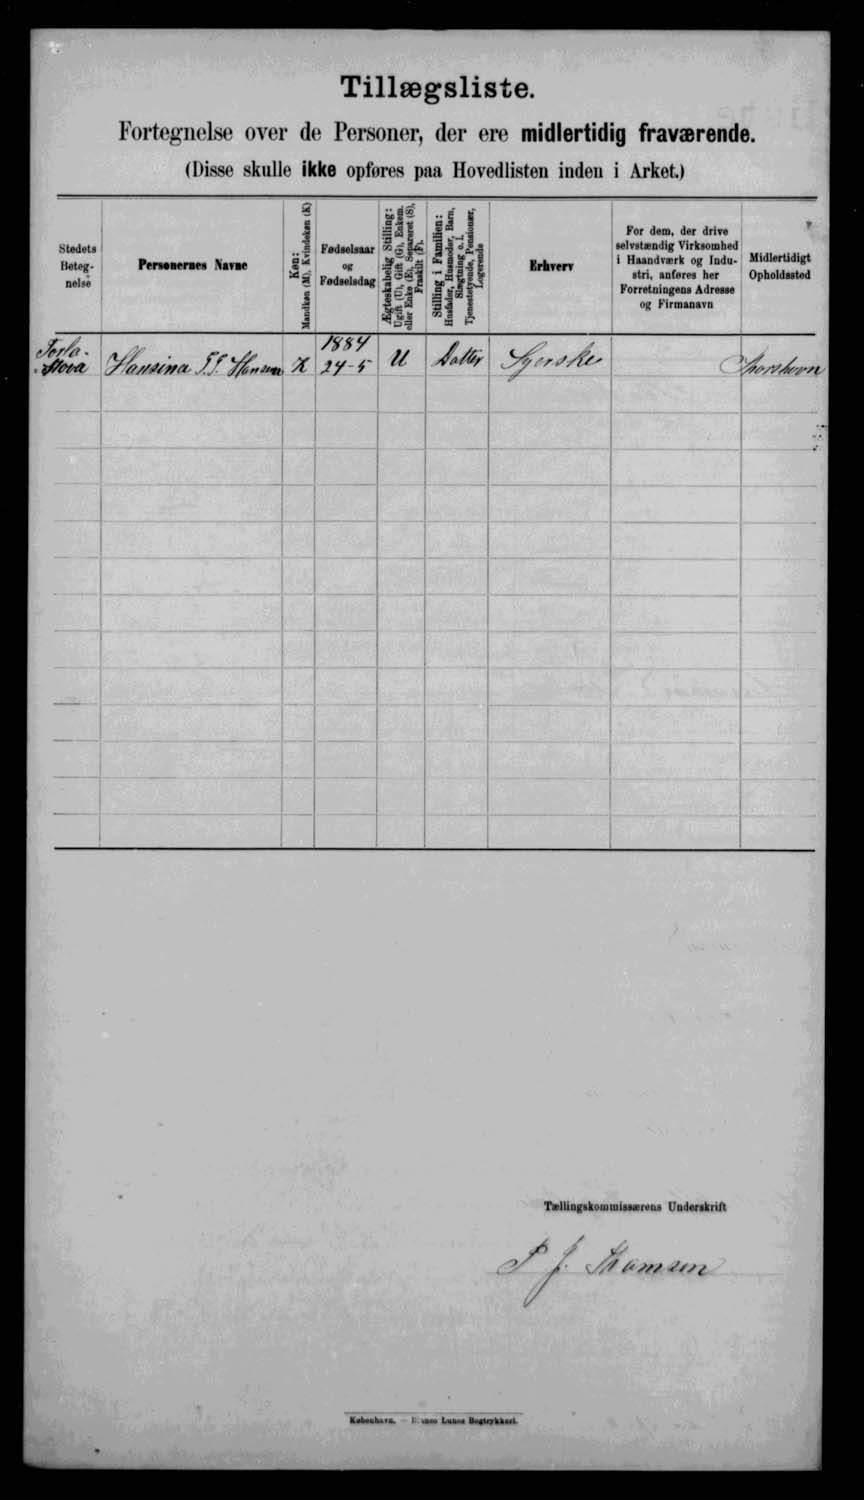 Tillægsliste.
Fortegnelse over de Personer, der ere midlertidig fraværende.
(Disse skulle ikke opføres paa Hovedlisten inden i Arket.)
Stedets
Beteg-
nelse
Personernes Navne
Køn:
Mandkøn (M), Kvindekøn (K)
Fødselsaar
og
Fødselsdag
Ægteskabelig Stilling:
Ugift (U), Gift (G), Enkem.
eller Enke (E), Separeret (S),
Fraskilt (F).
Stilling i Familien:
Husfader, Husmoder, Barn,
Slægtning o. l.
Tjenestetyende, Pensionær,
Logerende
Erhverv
For dem, der drive
selvstændig Virksomhed
i Haandværk og Indu-
stri, anføres her
Forretningens Adresse
og Firmanavn
Midlertidigt
Opholdssted
Hansina Hansen K 1884 24-5 U Datter Syerske Thorshavn
Tællingskommissærens Underskrift
P J. Thomsen
København. — Bianco Lunos Bogtrykkeri.